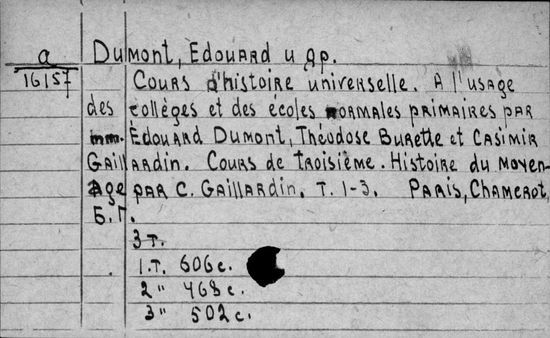 a
16157
Dumont, Edouard и др.
Cours d'histoire universelle. A l'usage
des collèges et des écoles normales primaires par
mm. Edouard Dumont, Théodose Burette et Casimir
Gaillardin. Cours de troisième. Histoire du moyen-
age par C. Gaillardin. T. 1-3. Paris, Chamerot,
Б. Г.
3 т.
1. т. 606 с.
2 " 468 с.
3 " 502 с.